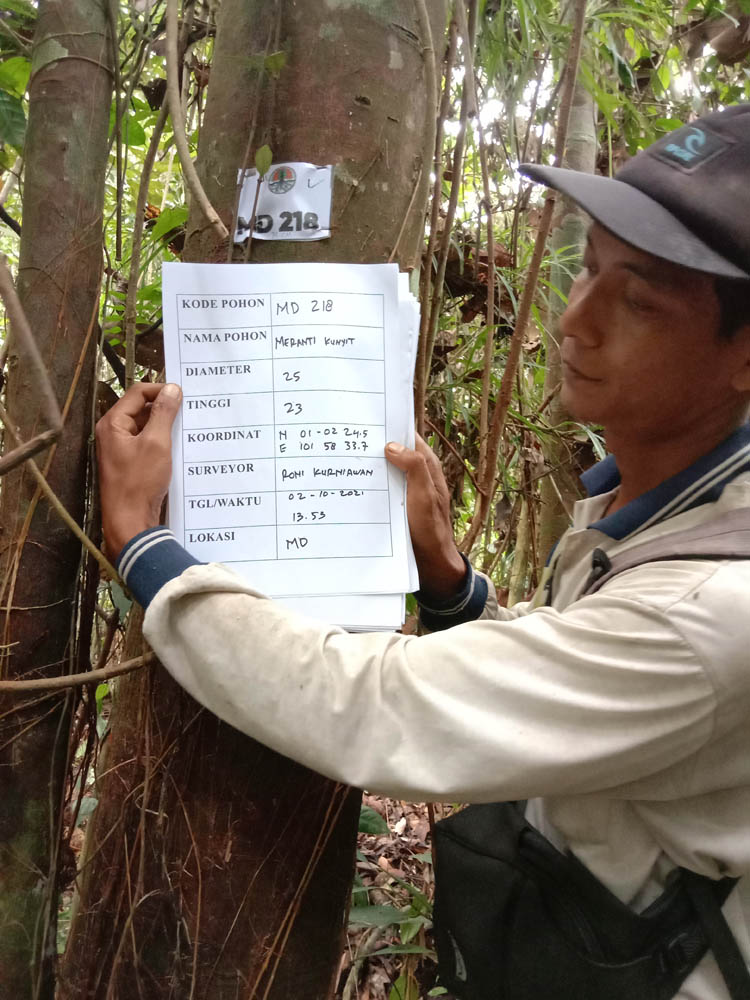 MD 218
KODE POHON MD 218
NAMA POHON MERANTI KUNYIT
DIAMETER 25
TINGGI 23
KOORDINAT N 01-02 24.5
E 101 58 33.7
SURVEYOR RONI KURNIAWAN
TGL/WAKTU 02-10-2021
13.53
LOKASI MD